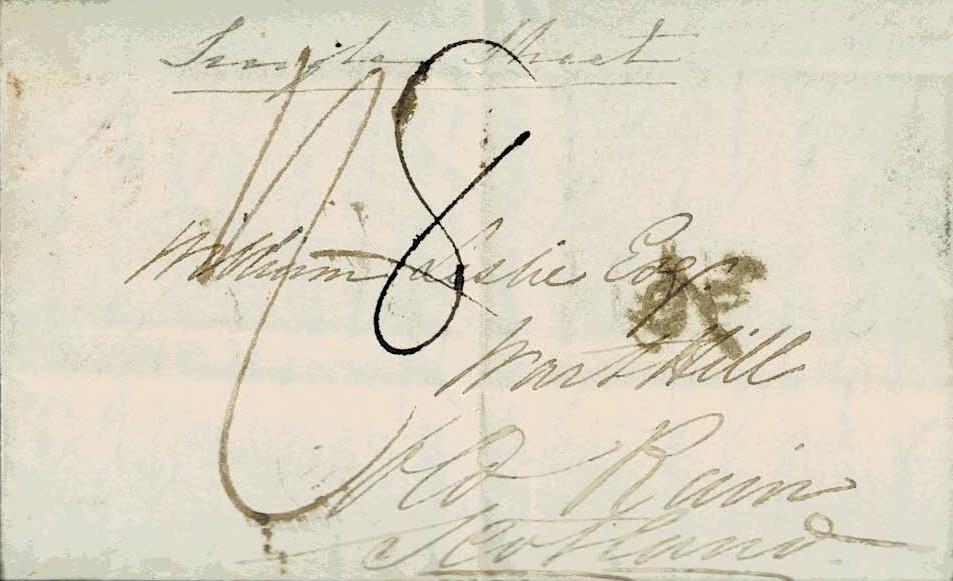 Single Sheet
8
William Leslie Esq.
Wart Hill
Old Rain
Scotland